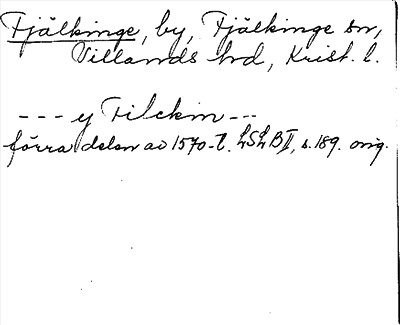 Fjälkinge, by, Fjälkinge sn,
Villands hd, Krist. l.
--- y Filckin ---
förra delen av 1570-t. LSLB II, s. 189. orig.